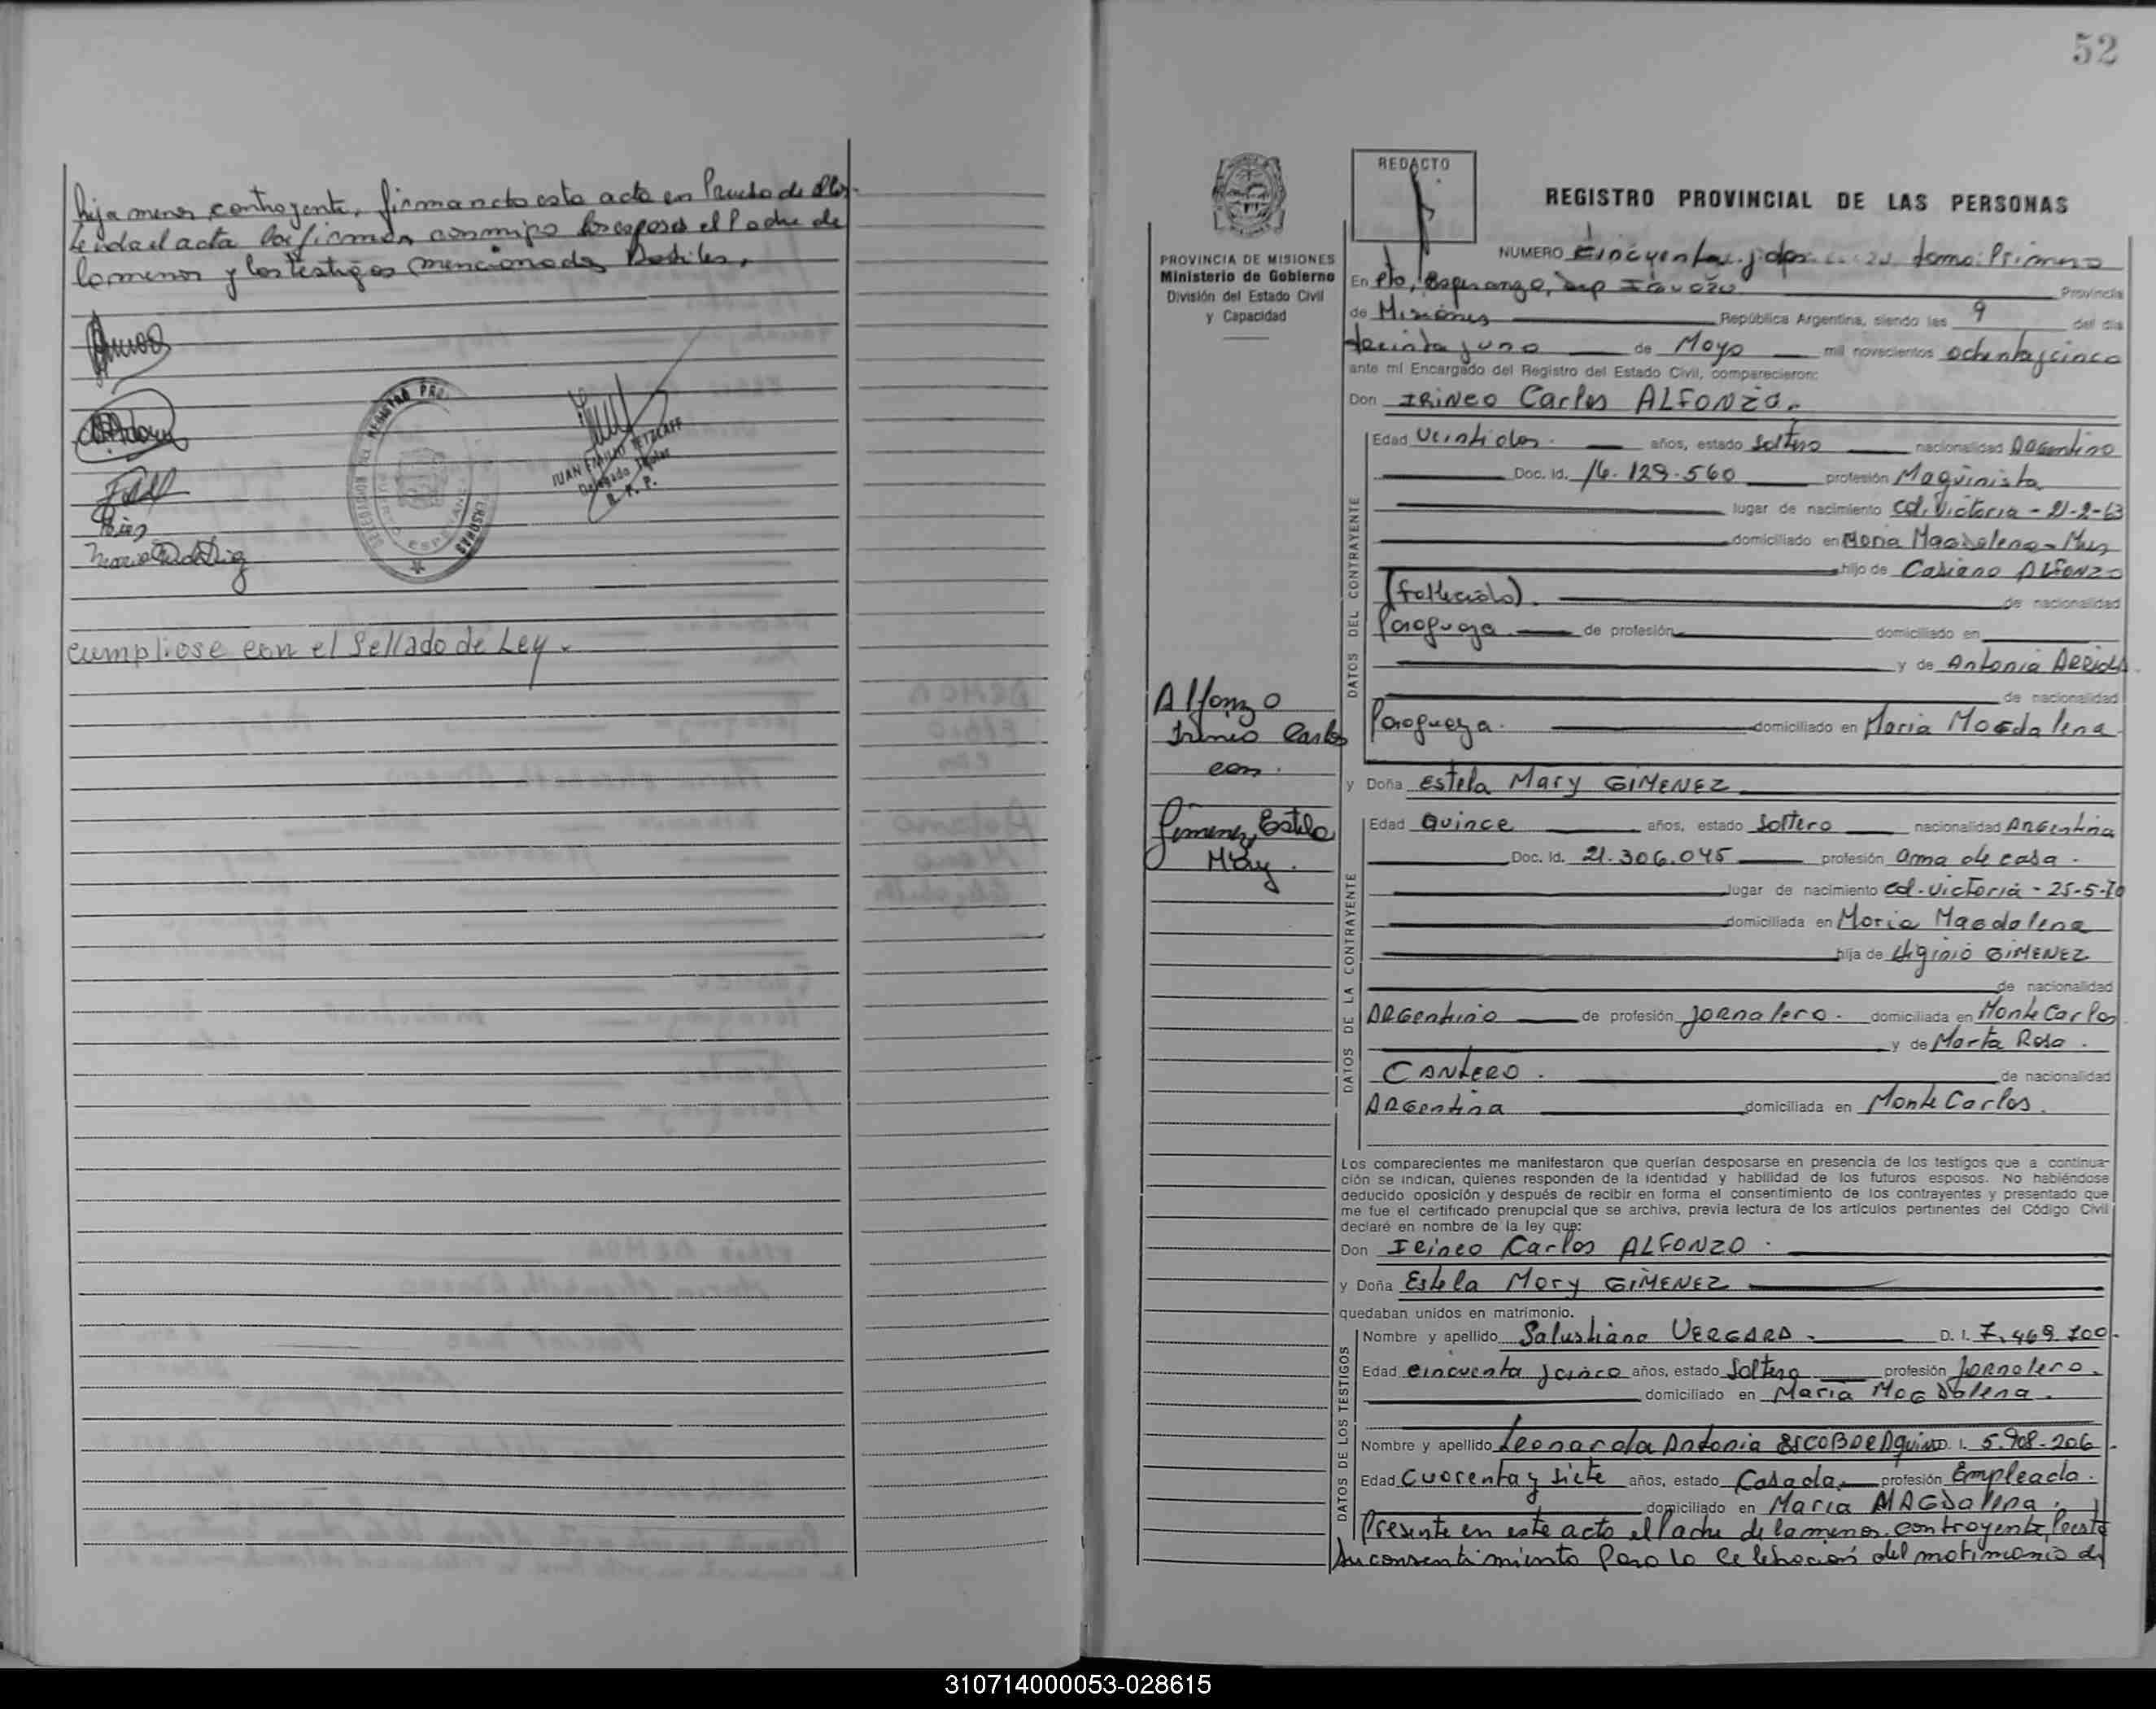 hija menor contrayente, firmando esta acta en Prueba de ello.
Leida el acta la firman conmigo los esposos el Padre de
la menor y los testigos mencionados Habiles.
REGISTRO PRO
PERSONAS
JUAN EMILIO
Delegado Titular
R. P. P.
cumpliose con el Sellado de Ley.
52
REDACTO
REGISTRO PROVINCIAL DE LAS PERSONAS
PROVINCIA DE MISIONES
Ministerio de Gobierno
División del Estado Civil
y Capacidad
NUMERO Cincuenta y dos tomo: Primero
En Pto, Esperanza, Dep Iguazú Provincia
de Misiones República Argentina, siendo las 9 del día
treinta y uno de Mayo mil novecientos ochenta y cinco
ante mí Encargado del Registro del Estado Civil, comparecieron:
Don IRINEO Carlos ALFONZO.
DATOS DEL CONTRAYENTE
Edad Veintidos. años, estado Soltero nacionalidad Argentino
Doc. Id. 16.129.560 profesión Maquinista
lugar de nacimiento Col. Victoria - 21-2-63
domiciliado en Maria Magdalena - Mnes
hijo de Casiano ALFONZO
(fallecido). de nacionalidad
Paraguaya de profesión domiciliado en
y de Antonia ARRIOLA
de nacionalidad
Paraguaya. domiciliado en Maria Magdalena
Alfonzo
Irineo Carlos
con.
Gimenez, Estela
Mary.
y Doña Estela Mary GIMENEZ
DATOS DE LA CONTRAYENTE
Edad Quince años, estado Soltera nacionalidad Argentina
Doc. Id. 21.306.045 profesión ama de casa.
lugar de nacimiento Col. Victoria - 25-5-70
domiciliada en Maria Magdalena
hija de Higinio GIMENEZ
de nacionalidad
Argentino de profesión Jornalero. domiciliada en Monte Carlos
y de Marta Rosa.
CANTERO. de nacionalidad
Argentina domiciliada en Monte Carlos.
Los comparecientes me manifestaron que querían desposarse en presencia de los testigos que a continua-
ción se indican, quienes responden de la identidad y habilidad de los futuros esposos. No habiéndose
deducido oposición y después de recibir en forma el consentimiento de los contrayentes y presentado que
me fue el certificado prenupcial que se archiva, previa lectura de los artículos pertinentes del Código Civil
declaré en nombre de la ley que:
Don Irineo Carlos ALFONZO.
y Doña Estela Mary GIMENEZ
quedaban unidos en matrimonio.
DATOS DE LOS TESTIGOS
Nombre y apellido Salustiano VERGARA. D. I. 7.469.700.
Edad cincuenta y cinco años, estado Soltero profesión Jornalero.
domiciliado en Maria Magdalena.
Nombre y apellido Leonarda Antonia ESCOBAR de Aquino D. I. 5.908.206.
Edad Cuarenta y siete años, estado Casada. profesión Empleada.
domiciliado en Maria MAGDALENA.
Presente en este acto el Padre de la menor contrayente, Presta
su consentimiento Para la Celebracion del matrimonio de
310714000053-028615